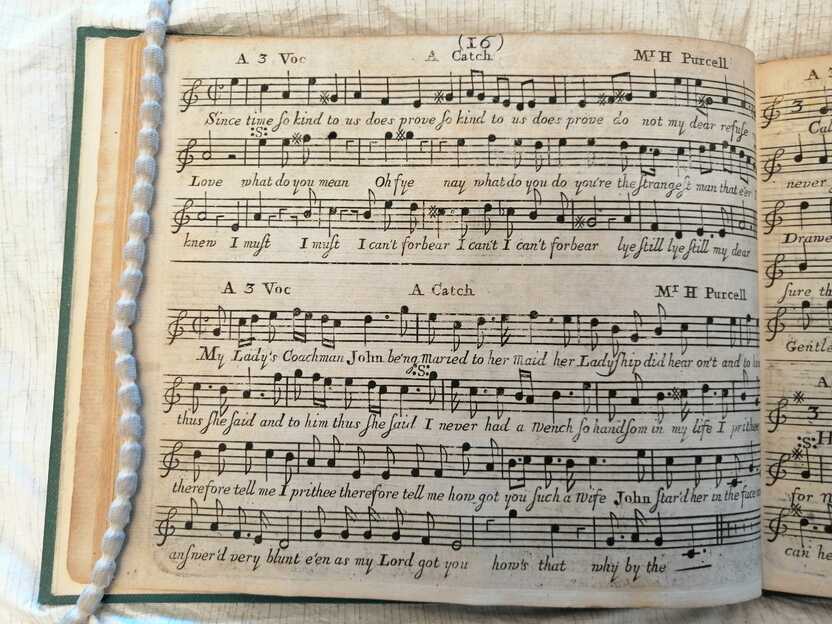 (16)
A 3 Voc A Catch Mr H Purcell
Since time ſo kind to us does prove ſo kind to us does prove do not my dear refuſe
:S:
Love what do you mean Oh fye nay what do you do you're the ſtrangeſt man that e'er
knew I muſt I muſt I can't forbear I can't I can't forbear lye ſtill lye ſtill my dear
A 3 Voc A Catch Mr H Purcell
My Lady's Coachman John being maried to her maid her Ladyſhip did hear on't and to
:S:
thus ſhe ſaid and to him thus ſhe ſaid I never had a wench ſo handſom in my life I prithee
therefore tell me I prithee therefore tell me how got you ſuch a wife John ſtar'd her in the face
anſwer'd very blunt e'en as my Lord got you how's that why by the
A 3
3
never
Drawe
ſure
Gentle
A
:S:
3
for
can he